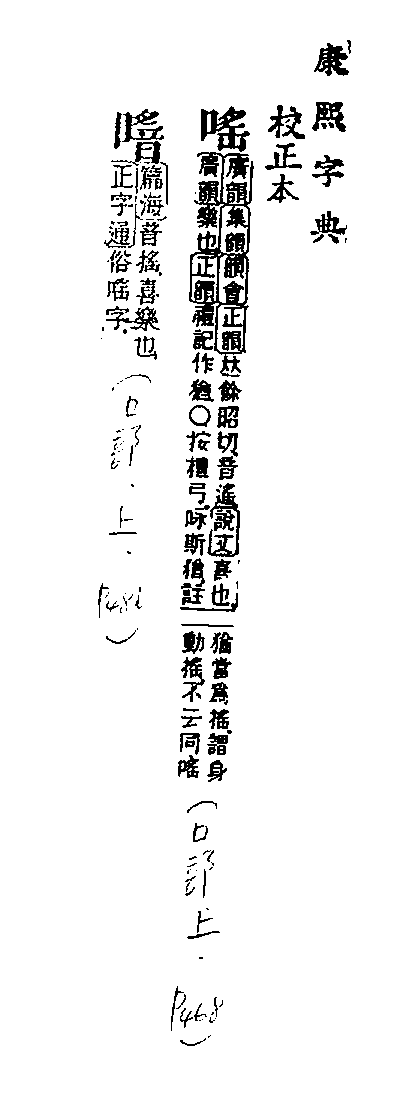 康熙字典
校正本
嗂
廣韻集韻韻會正韻𠀤餘昭切音遙說文喜也
廣韻樂也正韻禮記作猶○按檀弓咏斯猶註
猶當爲搖謂身
動搖不云同嗂
(口部上.P468)
篇海音搖喜樂也
正字通俗嗂字
(口部.上.P481)